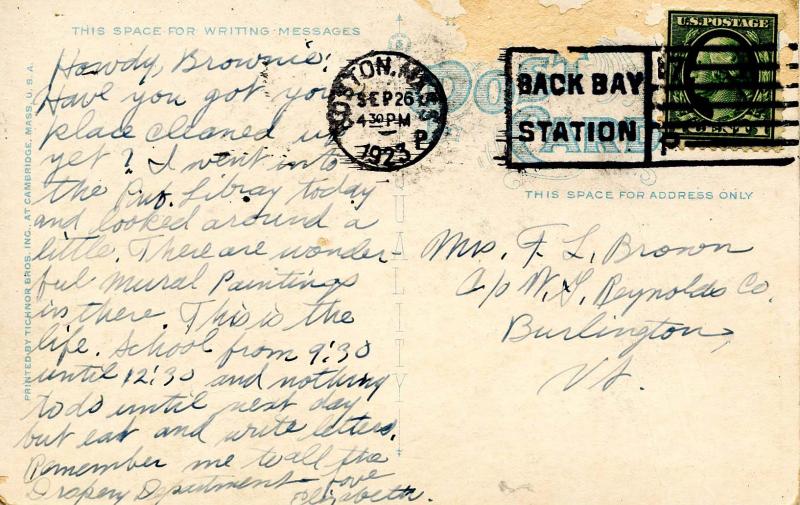 THIS SPACE FOR WRITING MESSAGES
Howdy, Brownie!
Have you got your
place cleaned up
yet? I went into
the Pub. Libray today
and looked around a
little. There are wonder-
ful Mural Paintings
in there. This is the
life. School from 9:30
until 12:30 and nothing
to do until next day
but eat and write letters.
Remember me to all the
Drapery Department - Love
Elizabeth.
PRINTED BY TICHNOR BROS. INC. AT CAMBRIDGE, MASS. U.S.A.
QUALITY
POST
CARD
BOSTON, MASS.
SEP 26
4 30 PM
1923
P
BACK BAY
STATION
U.S. POSTAGE
1 CENT 1
THIS SPACE FOR ADDRESS ONLY
Mrs. F. L. Brown
c/o W. G. Reynolds Co.
Burlington,
Vt.